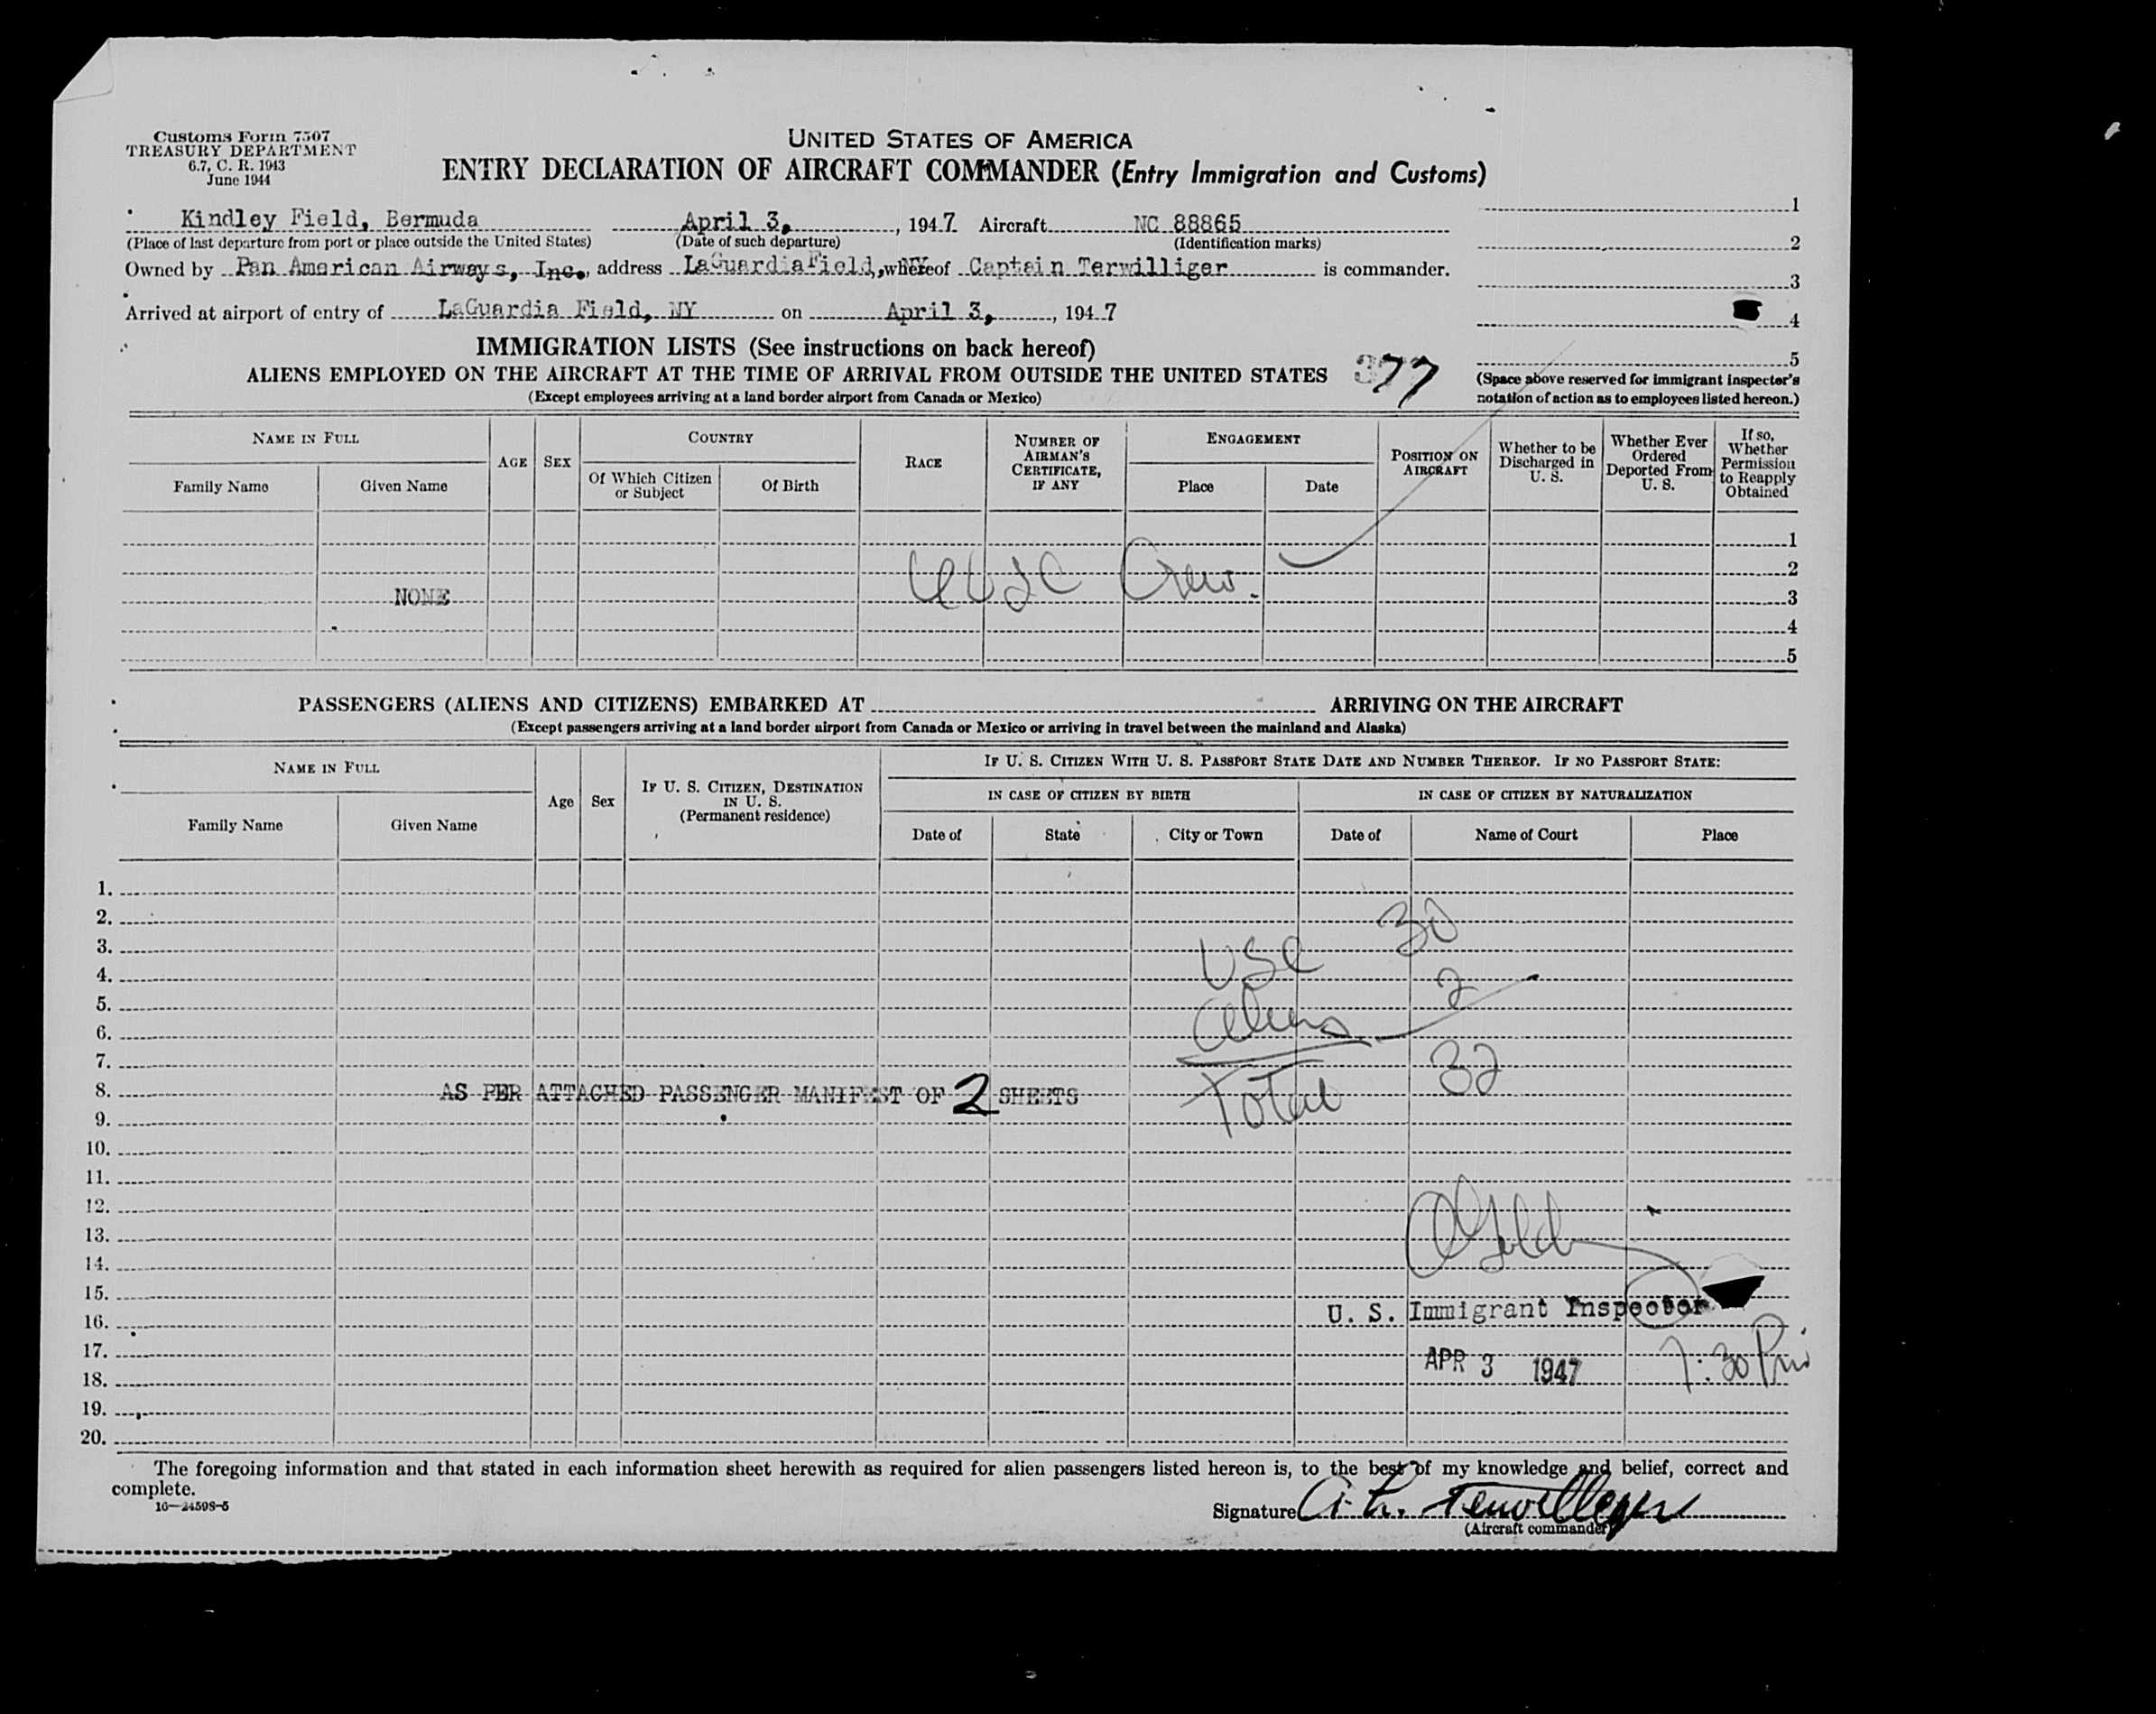 Customs Form 7507
TREASURY DEPARTMENT
6.7, C. R. 1943
June 1944
UNITED STATES OF AMERICA
ENTRY DECLARATION OF AIRCRAFT COMMANDER (Entry Immigration and Customs)
Kindley Field, Bermuda April 3, , 1947 Aircraft NC 88865
(Place of last departure from port or place outside the United States) (Date of such departure) (Identification marks)
Owned by Pan American Airways, Inc., address LaGuardia Field, NY whereof Captain Terwilliger is commander.
Arrived at airport of entry of LaGuardia Field, NY on April 3, , 1947
1
2
3
4
5
(Space above reserved for immigrant inspector's
notation of action as to employees listed hereon.)
IMMIGRATION LISTS (See instructions on back hereof)
ALIENS EMPLOYED ON THE AIRCRAFT AT THE TIME OF ARRIVAL FROM OUTSIDE THE UNITED STATES 377
(Except employees arriving at a land border airport from Canada or Mexico)
NAME IN FULL
Family Name Given Name
AGE SEX
COUNTRY
Of Which Citizen or Subject Of Birth
RACE
NUMBER OF AIRMAN'S CERTIFICATE, IF ANY
ENGAGEMENT
Place Date
POSITION ON AIRCRAFT
Whether to be Discharged in U. S.
Whether Ever Ordered Deported From U. S.
If so, Whether Permission to Reapply Obtained
1
2
NONE USC Crew. 3
4
5
PASSENGERS (ALIENS AND CITIZENS) EMBARKED AT ARRIVING ON THE AIRCRAFT
(Except passengers arriving at a land border airport from Canada or Mexico or arriving in travel between the mainland and Alaska)
NAME IN FULL
Family Name Given Name
Age Sex
IF U. S. CITIZEN, DESTINATION IN U. S.
(Permanent residence)
IF U. S. CITIZEN WITH U. S. PASSPORT STATE DATE AND NUMBER THEREOF. IF NO PASSPORT STATE:
IN CASE OF CITIZEN BY BIRTH IN CASE OF CITIZEN BY NATURALIZATION
Date of State City or Town Date of Name of Court Place
1.
2.
3. USC 30
4.
5. 2
6. Aliens
7. 32
8. AS PER ATTACHED PASSENGER MANIFEST OF 2 SHEETS Total
9.
10.
11.
12.
13.
14.
15.
16. U. S. Immigrant Inspector
17. APR 3 1947 7:30 Pm
18.
19.
20.
The foregoing information and that stated in each information sheet herewith as required for alien passengers listed hereon is, to the best of my knowledge and belief, correct and
complete.
16—24598-5
Signature A. L. Terwilleger
(Aircraft commander)